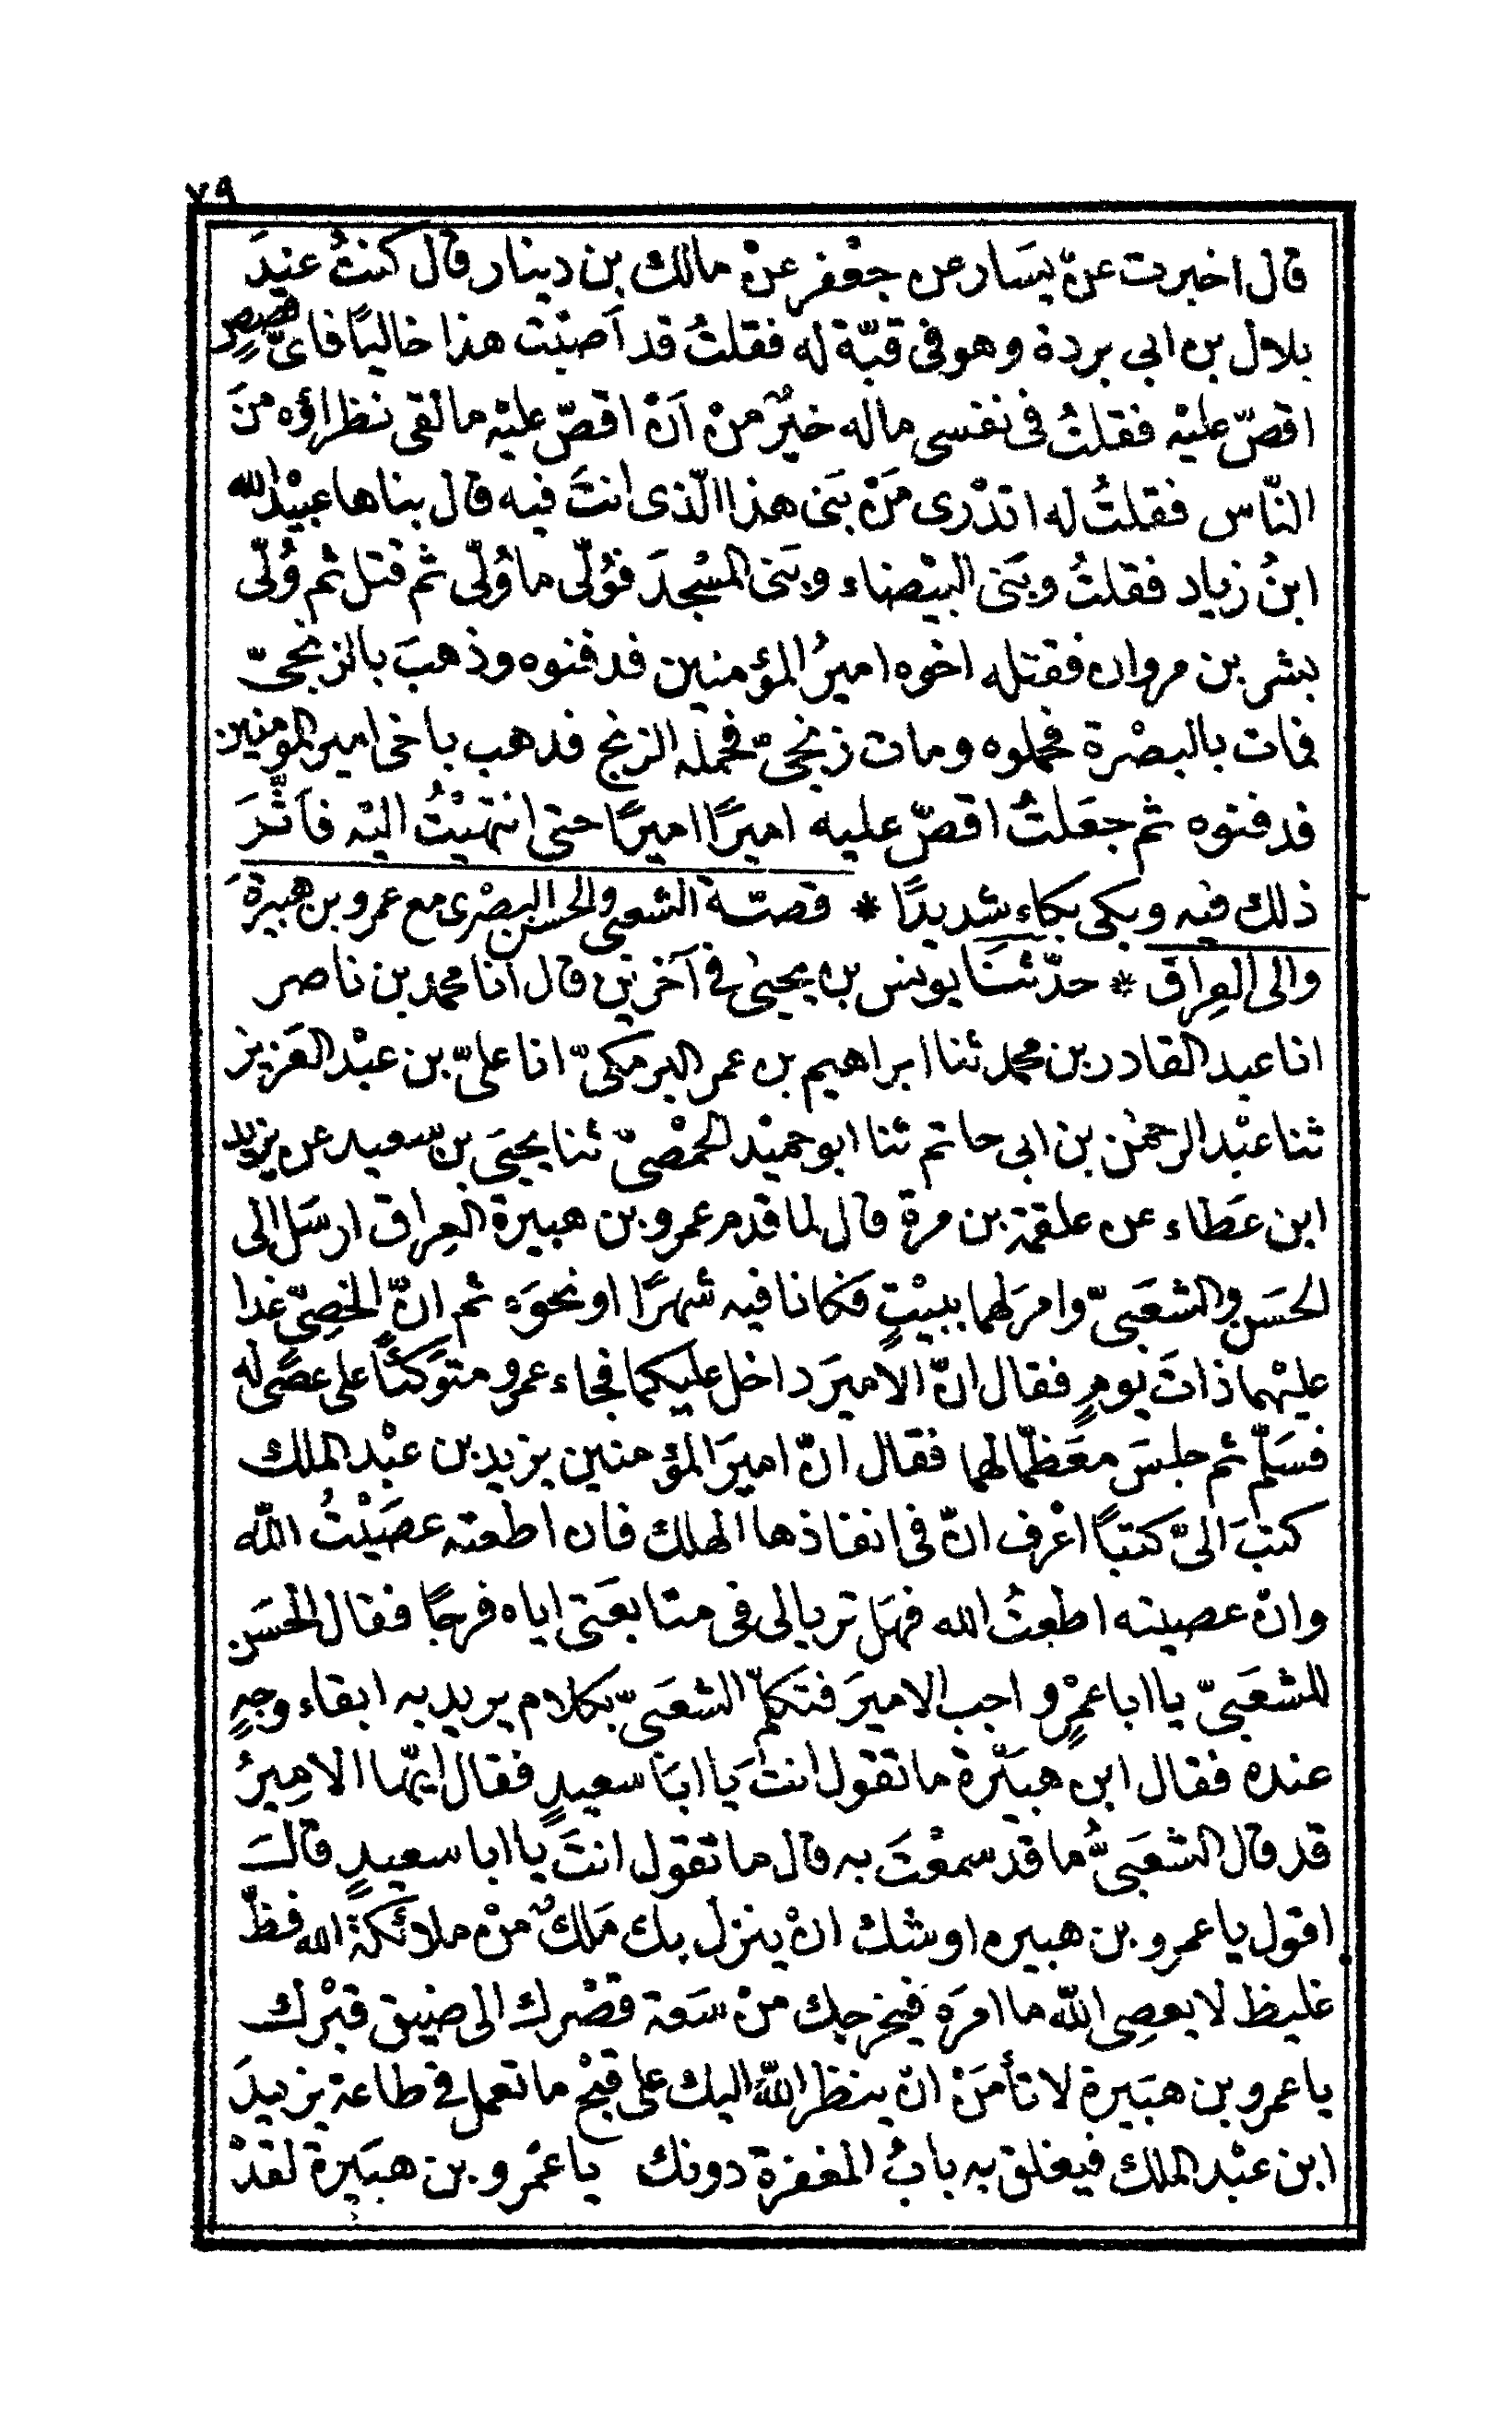 ٧٩
قال اخبرت عنْ يسَار عن جعْفر عنْ مالك بن دينار قال كنتُ عندَ
بلال بن ابى بردة وهو فى قبّة له فقلتُ قد اَصبْت هذا خاليًا فاىّ قصصٍ
اقصّ عليْه فقلتُ فى نفسى ماله خيرٌ منْ اَنْ اقصّ عليْه ما لقى نظراؤه منَ
النّاس فقلتُ له اتدْرى مَنْ بَنى هذا الّذى انتَ فيه قال بناها عبيْد الله
ابنُ زياد فقلتُ وبَنى البيْضاء وبَنى المسْجدَ فوُلّى ما وُلّى ثم قتل ثم وُلّى
بشر بن مروان فقتله اخوه اميرُ المؤمنين فدفنوه وذهبَ بالزنجىّ
فمات بالبصْرة فحملوه ومات زنجىّ فحمله الزنج فذهب باخى امير المومنين
فدفنوه ثم جعَلتُ اقصّ عليه اميرًا اميرًا حتى انتهيْتُ اليْه فاَثّرَ
ذلك فيه وبكى بكاء شديدًا * قصّة الشعبى والحسن البصْرى مع عمرو بن هبيرةَ
والى العِراق * حدّثنَا يونس بن يحيىٰ فى آخرين قال انا محمد بن ناصر
انا عبد القادر بن محمد ثنا ابراهيم بن عمر البرمكىّ انا علىّ بن عبْد العَزيز
ثنا عبْد الرحمٰن بن ابى حاتم ثنا ابو حميْد الحمْصىّ ثنا يحيَى بن سعيد عن يزيد
ابن عَطاء عن علقمة بن مرة قال لما قدم عمرو بن هبيرة العِراق ارسَل الى
الحسَن والشعَبىّ وامرَ لهما ببيْتٍ فكانا فيه شهرًا او نحوَه ثم انّ الخصِىّ غدا
عليْهما ذاتَ يومٍ فقال انّ الاميرَ داخل عليكما فجاء عمرو متوَكئًا على عصًى له
فسَلّم ثم جلسَ معَظّما لهما فقال انّ اميرَ المؤمنين يزيد بن عبْد الملك
كتبَ الىَّ كتبًا اعْرف انّ فى انفاذها الهلك فان اطعته عصَيْتُ الله
وانْ عصيته اطعتُ الله فهَل تريا لى فى متابعَتى اياه فرجًا فقال الحسَن
للشعَبىّ يا ابا عمْرٍو اجب الاميرَ فتكلّم الشعَبىّ بكلام يريد به ابقاء وجهٍ
عنده فقال ابن هبَيْرة ما تقول انتَ يَا ابَا سعيدٍ فقال ايّها الامِيرُ
قد قال الشعَبىُّ ما قد سمعْتَ به قال ما تقول انتَ يا ابا سعيدٍ قالَ
اقول يا عمرو بن هبيره اوشك انْ ينزل بك مَلكٌ منْ ملائكة الله فظّ
غليظ لا يعصِى الله ما امرَه فيخرجك منْ سَعة قصْرك الى ضيق قبْرك
يا عمرو بن هبَيرة لا تأمَنْ انْ ينظر اللهُ اليك على قبْح ما تعمل فى طاعة يزيدَ
ابن عبْد الملك فيغلق به بابُ المغفرة دونك يا عمْرو بن هبَيرة لقدْ